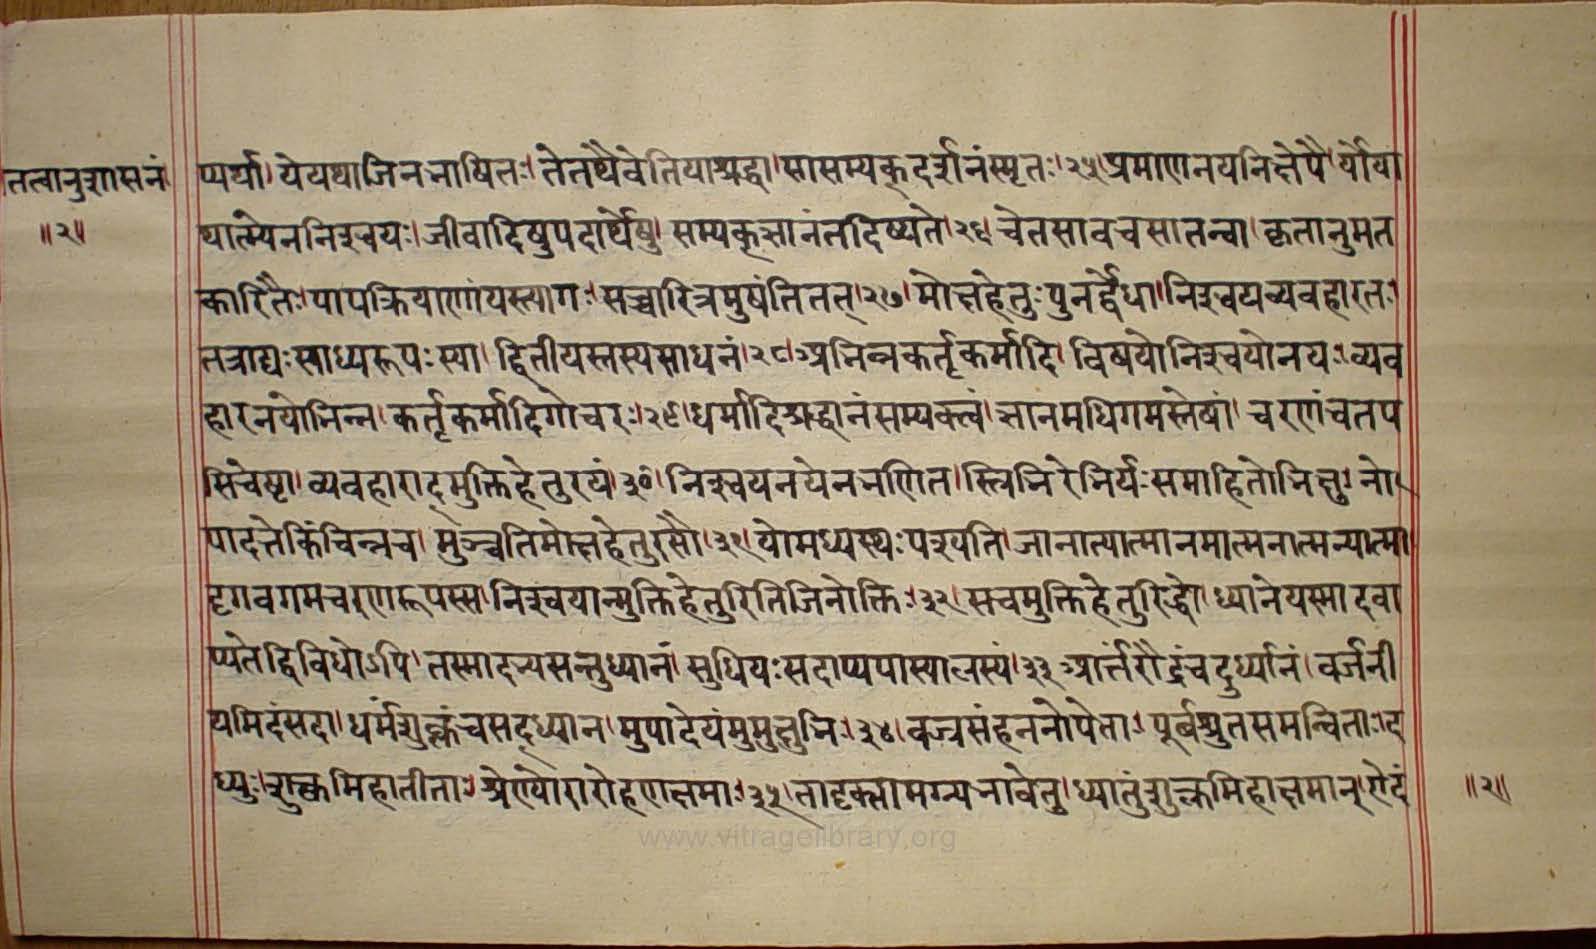 तत्वानुशासनं
॥२॥
प्यर्या।येयथाजिनभाषितः।तेतथैवेतियाश्रद्धा।सासम्यक्दर्शनंस्मृतः।२५।प्रमाणनयनिक्षेपै।र्योया
थात्म्येननिश्चयः।जीवादिषुपदार्थेषु।सम्यक्ज्ञानंतदिष्यते।२६।चेतसावचसातन्वा।कृतानुमत
कारितैः।पापक्रियाणांयस्त्यागः।सच्चारित्रमुषंतितत्।२७।मोक्षहेतुःपुनर्द्वेधा।निश्चयव्यवहारतः।
तत्राद्यःसाध्यरूपःस्या।द्वितीयस्तस्यसाधनं।२८।अभिन्नकर्तृकर्मादि।विषयोनिश्चयोनयः।व्यव
हारनयोभिन्न।कर्तृकर्मादिगोचरः।२९।धर्मादिश्रद्धानंसम्यक्त्वं।ज्ञानमधिगमस्तेषां।चरणंचतप
सिचेष्टा।व्यवहाराद्मुक्तिहेतुरयं।३०।निश्चयनयेनभणित।स्त्रिभिरेभिर्यःसमाहितोभिक्षुः।नो
पादत्तेकिंचिन्नच।मुञ्चतिमोक्षहेतुरसौ।३१।योमध्यस्थःपश्यति।जानात्यात्मानमात्मनात्मन्यात्मा
दृगवगमचरणरूपस्स।निश्चयान्मुक्तिहेतुरितिजिनोक्तिः।३२।सचमुक्तिहेतुरिद्धो।ध्यानेयस्मादवा
प्यतेद्विविधोऽपि।तस्मादभ्यसन्तुध्यानं।सुधियःसदाप्यपास्यालस्यं।३३।आर्त्तरौद्रंचदुर्ध्यानं।वर्जनी
यमिदंसदा।धर्मंशुक्लंचसद्ध्यान।मुपादेयंमुमुक्षुभिः।३४।वज्रसंहननोपेताः।पूर्बश्रुतसमन्विताः।द
ध्युः।शुक्लमिहातीताः।श्रेण्योरारोहणक्षमाः।३५।तादृक्सामग्र्यभावेतु।ध्यातुंशुक्लमिहाक्षमान्।ऐदं
॥२॥
www.vitragelibrary.org